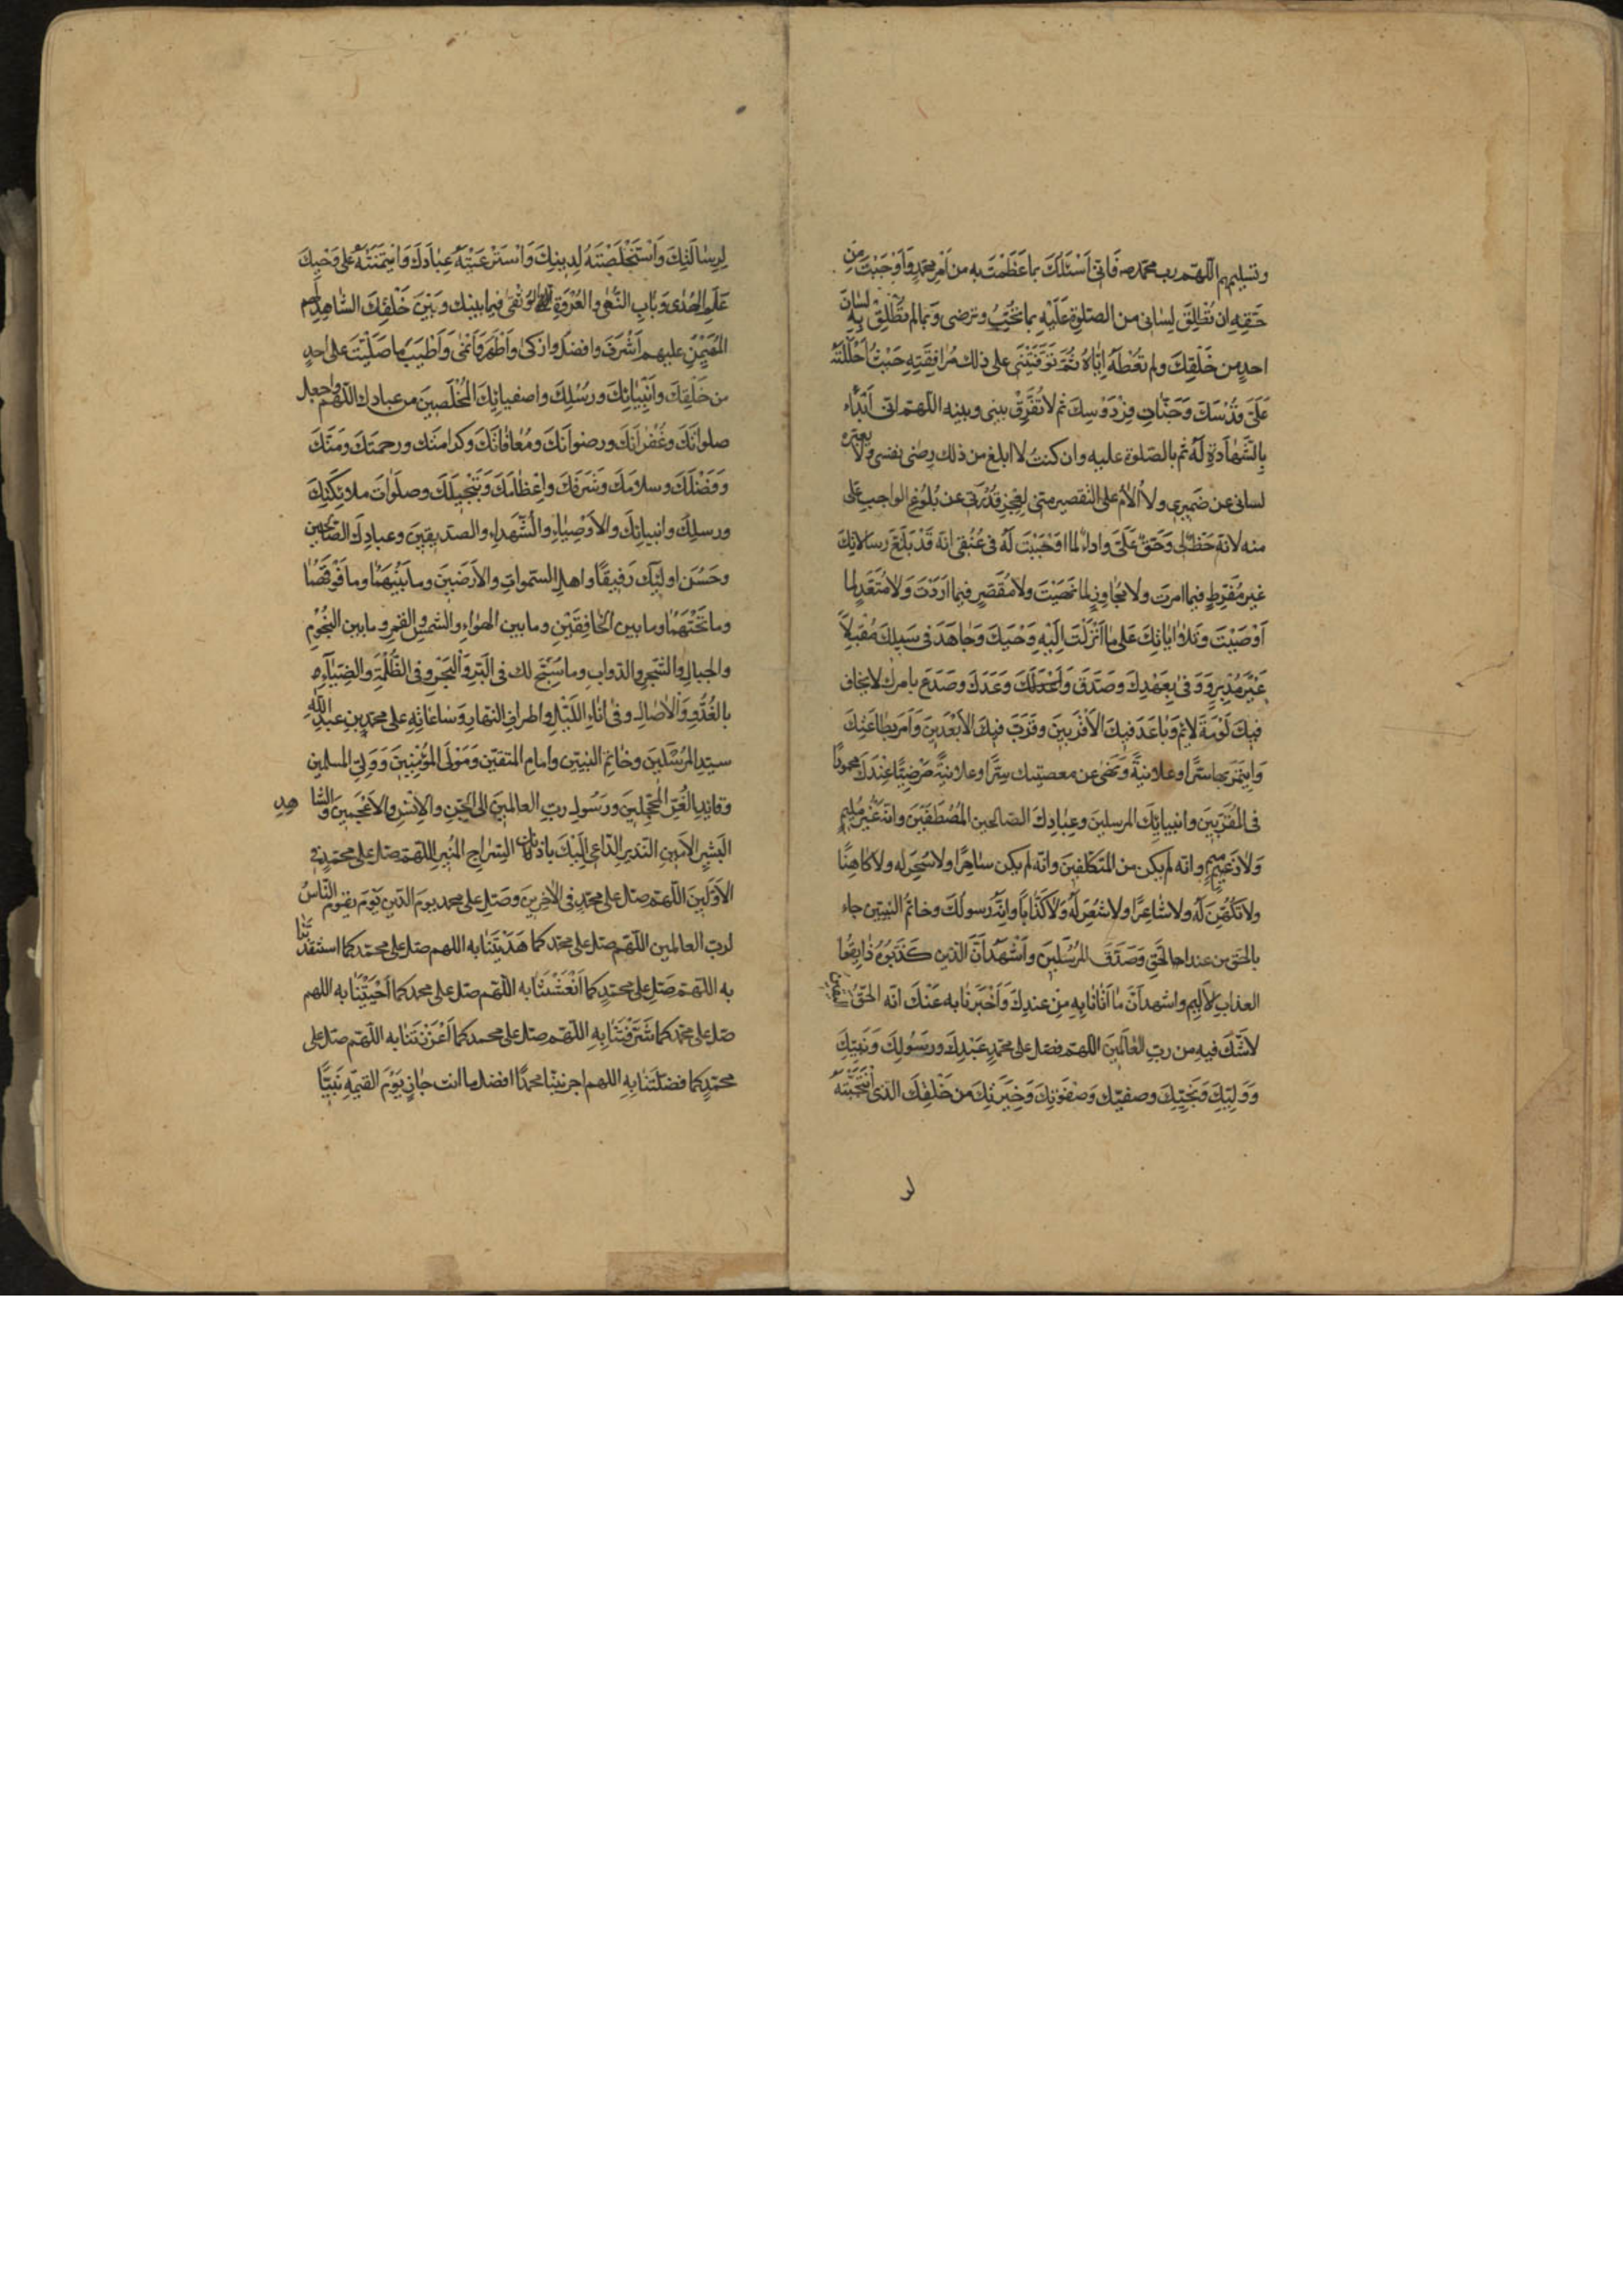 وتسليمهم اللهم رب محمد صه فَاِنّى اَسْئَلُكَ بما عَظَّمْتَ به من اَمْرِ محمّدٍ وَاَوْجَبْتَ مِنْ
حَقِّهِ ان تُطْلِقَ لِسانى من الصّلوةِ عَلَيْهِ بما تُحِبُّ وترضى وَبما لم تُطْلِقْ بِهِ لِسَانَ
احدٍ من خَلْقِكَ ولم تُعْطِهُ اِيّاهُ ثُمَّ تَوَفَّيْتَنى على ذلك مُرافَقَتِهِ حَيْثُ اَحْلَلْتَهُ
عَلَى قُدْسِكَ وَجَنّاتِ فِرْدَوْسِكَ ثم لا تُفَرِّقْ بينى وبينه اللّهمّ انى اَبْدَاُ
بِالشَّهادَةِ لَهُ ثم بالصّلوة عليه وان كنتُ لا ابلغ من ذلك رِضى نفسى ولا يعبّره
لسانى عن ضَميرى ولا اُلامُ على التقصير منّى لِعَجْزِ قُدْرَتى عن بُلُوغِ الواجبِ علىّ
منه لانّهُ حَظٌّ لى وَحَقٌّ عَلَىَّ واداءٌ لما اوَجَبْتَ لَهُ فى عُنُقى انّهُ قَدْ بَلَّغَ رِسالاتِكَ
غير مُفَرِّطٍ فيما امرتَ ولا مُجاوِزٍ لما نَهَيْتَ ولا مُقَصِّرٍ فيما اَرَدْتَ وَلا مُتَعَدٍّ لما
اَوْصَيْتَ وَتلا اٰياتِكَ عَلى ما اَنْزَلْتَ اِلَيْهِ وَحْيَكَ وَجاهَدَ فى سَبيلِكَ مُقْبِلاً
غَيْرَ مُدْبِرٍ وَوَفى بِعَهْدِكَ وصَدَّقَ وَعَدَكَ وصَدَعَ بامرك لا يخاف
فيكَ لَوْمَةَ لائمٍ وَباعَدَ فيكَ الاَقْرَبينَ وقَرَّبَ فيكَ الاَبْعَدينَ وَاَمَرَ بطاعَتِكَ
وَايتَمَرَ بها سِرًّا وعلانيةً وَنَهى عن معصيتك سِرًّا وعلانيةً مَرْضِيًّا عِنْدَكَ محموداً
فى المُقَرَّبينَ وانبيائِكَ المرسلينَ وعِبادِكَ الصّالحين المُصْطَفَيْنَ وانّهُ غَيْرُ مُليمٍ
وَلا ذَميمٍ وانّه لم يكن من المتكلّفينَ وانّه لم يكن ساحِراً ولا سُحِرَ له ولا كاهِناً
ولا تُكُهِّنَ لَهُ ولا شاعِراً ولا شُعِرَ لَهُ وَلا كَذّاباً وانّه رسولُكَ وخاتمُ النبيّين جاء
بالحقّ من عند الحقّ وَصَدَّقَ المُرْسَلينَ وَاَشْهَدُ اَنَّ الّذين كَذَّبُوهُ ذائِقُوا
العذابِ الاَليم واشهد اَنَّ ما اَتانا بِهِ مِنْ عندِكَ وَاَخْبَرَنا به عَنْكَ انّه الحقُّ اليقين
لا شَكَّ فيهِ من ربِّ العالَمينَ اللهمّ فصَلِّ على محمّدٍ عَبْدِكَ ورَسُولِكَ وَنَبِيِّكَ
وَوَلِيِّكَ وَنَجِيِّكَ وصفيّك وَصَفْوَتِكَ وَخِيَرَتِكَ من خَلْقِكَ الّذى اَنْتَجَبْتَهُ
لر
لِرِسٰالَتِكَ وَاَسْتَخْلَصْتَهُ لِدينِكَ وَاسْتَرْعَيْتَهُ عِبادَكَ وَايتَمَنْتَهُ على وَحْيِكَ
عَلَمِ الهُدى وَبابِ النُّهى والعُرْوَةِ الوُثْقى فيما بينك وَبَيْنَ خَلْقِكَ الشّاهِدِ لهم
المُهَيْمِنِ عليهم اَشْرَفَ وافضلَ وازكى وَاَطْهَرَ وَاَنمى وَاَطْيَبَ ما صَلَّيْتَ على احدٍ
من خَلْقِكَ وَاَنْبِيائِكَ ورُسُلِكَ واصفيائِكَ المُخْلَصينَ من عبادك اللّهمّ واجعل
صلواتَكَ وغُفْرانَكَ ورضوانَكَ ومُعافاتَكَ وكرامتك ورحمتك وَمَنَّكَ
وَفَضْلَكَ وسلامَكَ وَشَرَفَكَ واِعْظامَكَ وَتَبْجيلَكَ وصلواتَ ملائكتِكَ
ورسلِكَ وانبيائِكَ والاَوْصِياءِ والشُّهَداءِ والصدّيقينَ وعبادِكَ الصّالحين
وحَسُنَ اولئِكَ رَفيقاً واهلِ السّمواتِ والاَرَضينَ وما بَيْنَهُما وما فَوْقَهُما
وما تَحْتَهُما وما بين الخافِقَيْنِ وما بين الهَواءِ والشمس والقمر وما بين النُّجُومِ
والجبالِ والشّجرِ والدّوابِ وما سَبَّحَ لك فى البَرِّ وَالْبَحْرِ وفى الظُّلْمَةِ والضِّياءِ
بالغُدُوِّ وَالْاٰصالِ وفى اناءِ اللَّيْلِ واطرافِ النّهارِ وَساعاتِهِ على محمّدِ بن عبدِ اللّهِ
سيّدِ المُرْسَلينَ وخاتَمِ النبيّين وامامِ المتّقين وَمَوْلَى المُؤْمِنينَ وَوَلِىِّ المسلمين
وقائِدِ الغُرِّ المُحَجَّلينَ ورَسُولِ ربّ العالمينَ الى الجِنِّ والاِنْسِ والاَعْجَمينَ والشّاهدِ
البَشيرِ الاَمينِ النّذيرِ الدّاعى اِلَيْكَ باذنك السِّراجِ المُنيرِ اللّهمّ صلّ على محمّدٍ فى
الاَوَّلينَ اللّهمّ صلّ على محمّدٍ فى الاٰخِرينَ وصَلِّ على محمد يومَ الدّينِ يَوْمَ يَقُومُ النّاسُ
لربّ العالمين اللّهمّ صلّ على محمّد كما هَدَيْتَنا به اللهم صلّ على محمّد كما استنقذتنا
به اللّهمّ صَلِّ على محمّدٍ كما اَنْعَشْتَنا به اللّهم صلّ على محمد كما اَحْيَيْتَنا به اللهم
صلّ على محمّد كما شَرَّفْتَنا بِهِ اللّهمّ صلّ على محمد كما اَعْزَزْتَنا به اللّهمّ صلّ على
محمّدٍ كما فضّلتَنا بِهِ اللهم اجز نبيّنا محمّداً افضل ما انت جازٍ يَوْمَ القيمةِ نَبِيّاً